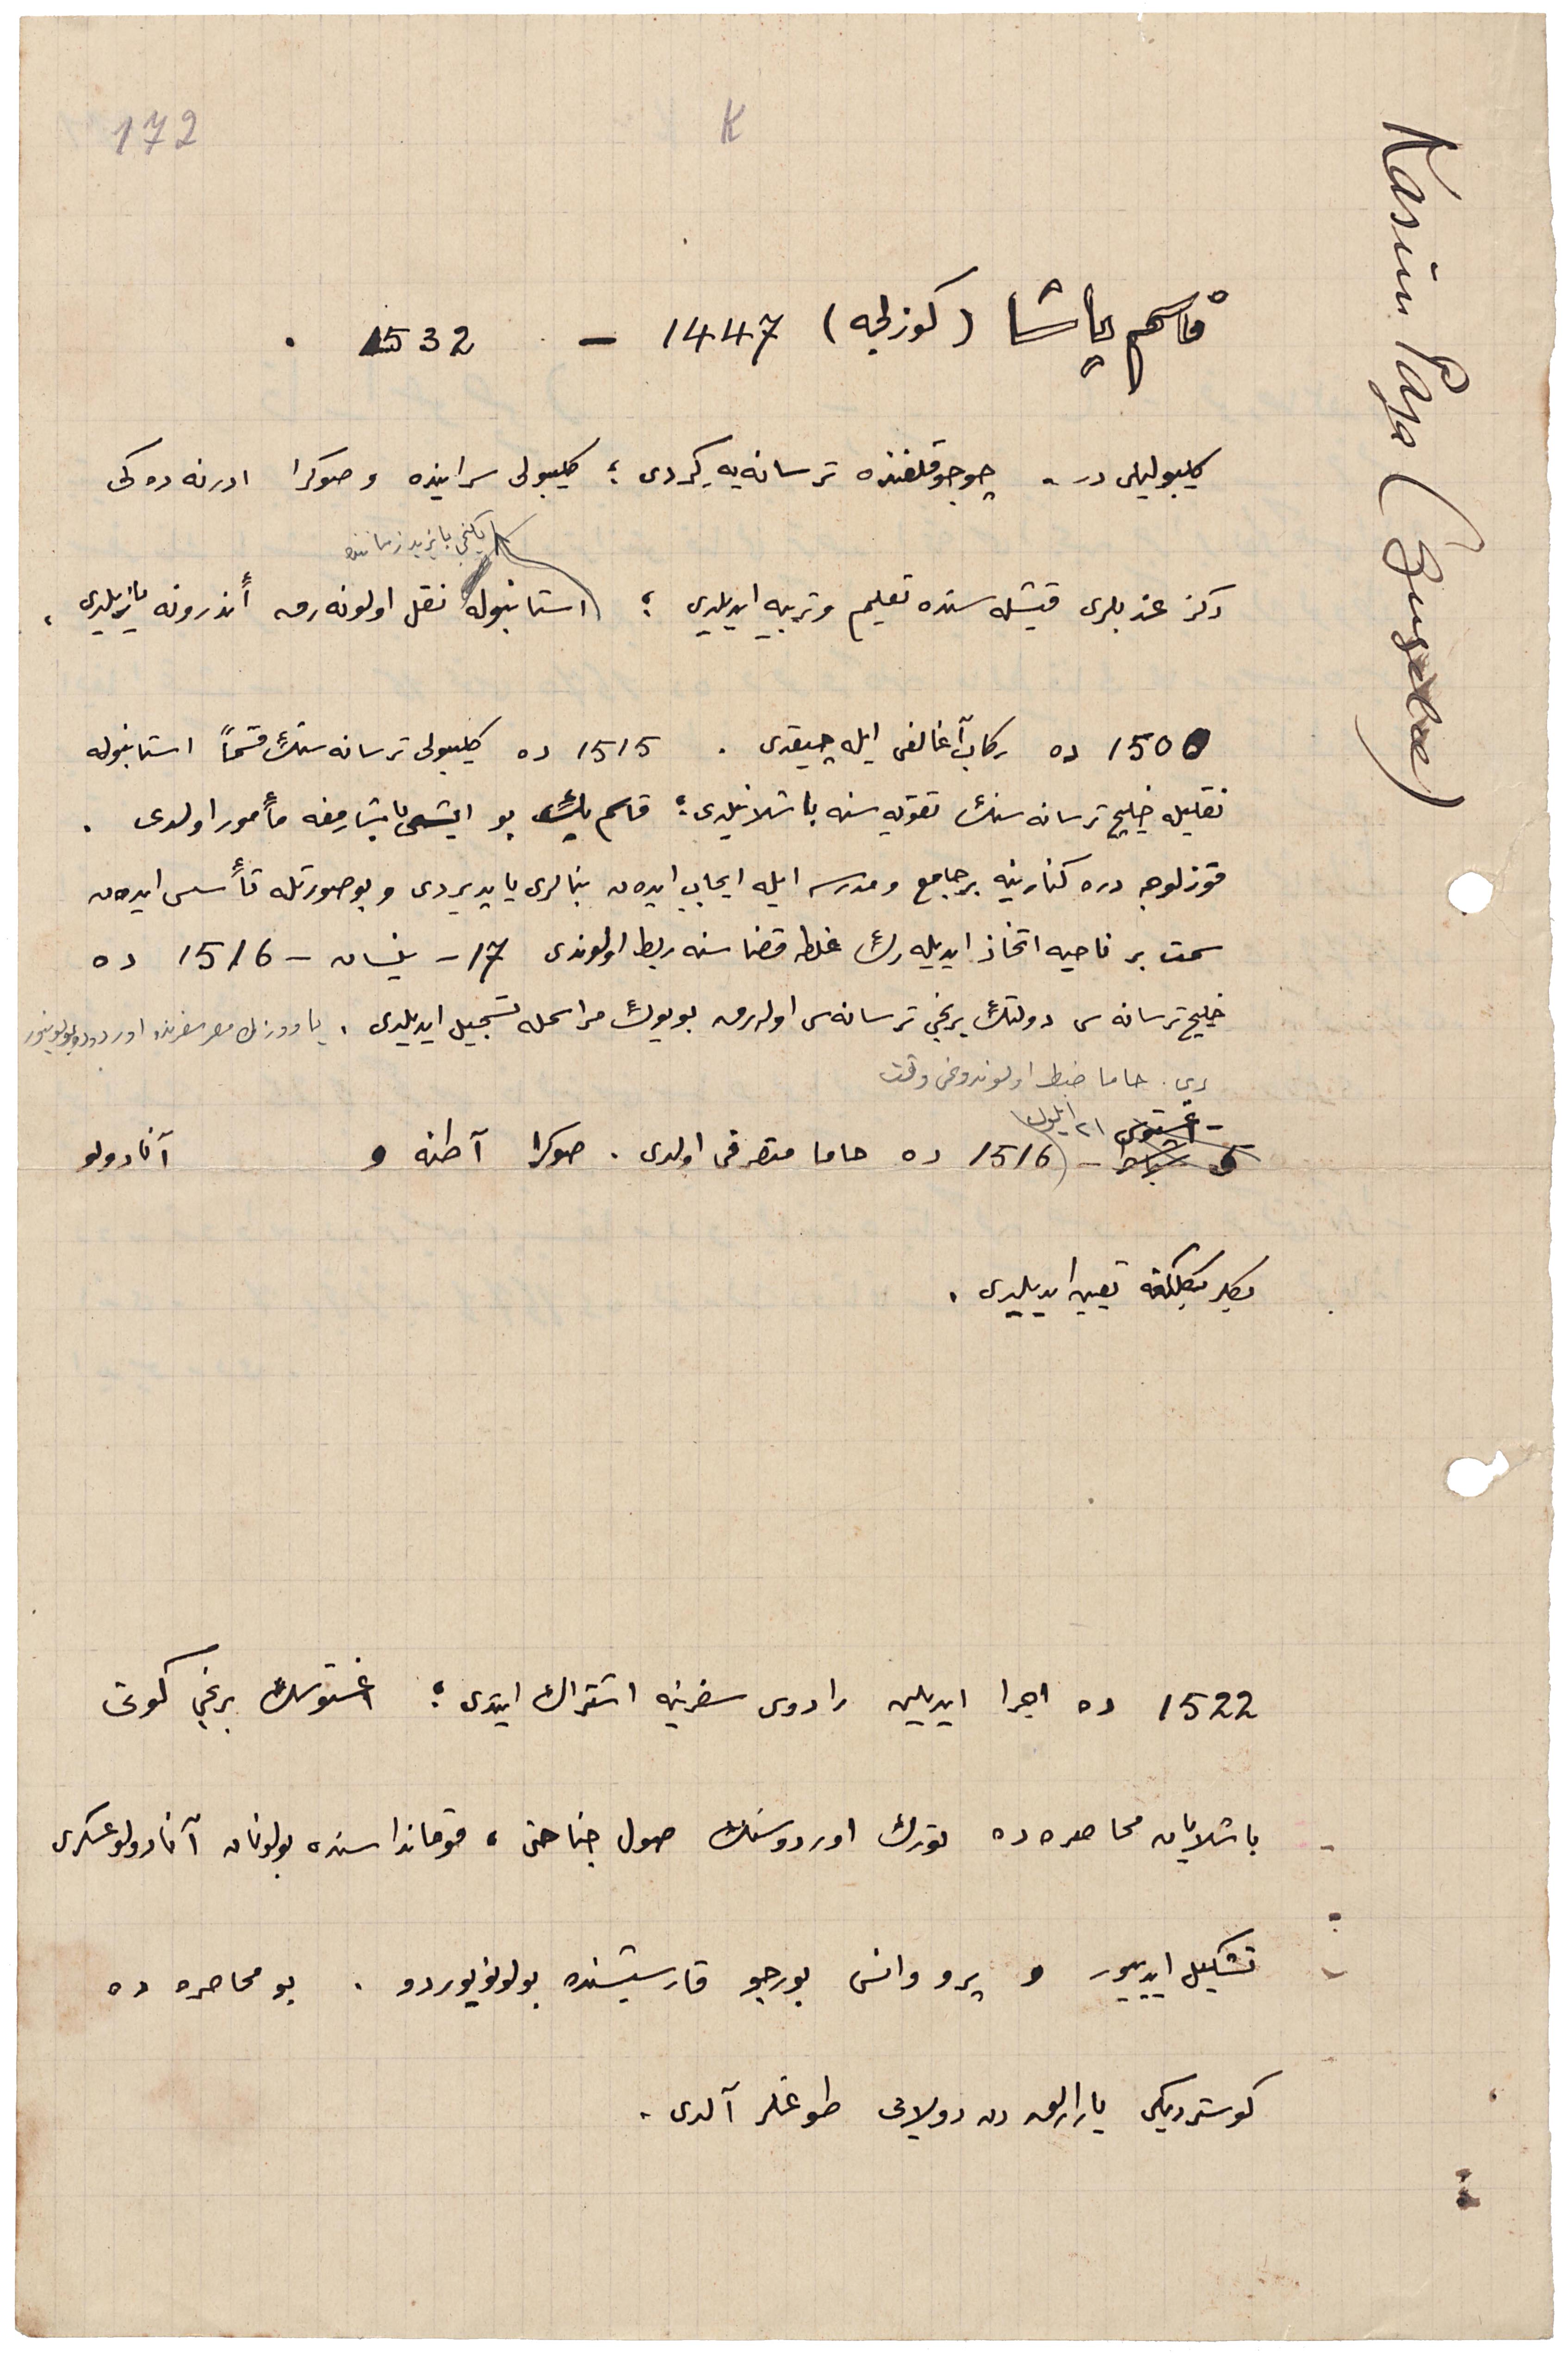 172
K
Kasım Paşa (Güzelce)
قاسم پاشا (كوزلجه) 1447 – 1532 .
كليبوليلى در . چوجوقلغنده ترسانه‌يه كيردى ؛ كليبولى سراينده و صوكرا ادرنه ده كى
ايكنجى بايزيد زماننده
دكز عزبلرى قيشله سنده تعليم و تربيه ايديلدى ؛ استانبوله نقل اولونه رق أندرونه يازيلدى .
1500 ده ركاب آغالغى ايله چيقدى . 1515 ده كليبولى ترسانه سنك قسماً استانبوله
نقليله خليج ترسانه سنك تقويه سنه باشلانيلدى ؛ قاسم بك بو ايشى باشارمغه مأمور اولدى .
قوزلوجه دره كنارينه بر جامع و مدرسه ايله ايجاب ايدن بنالرى ياپديردى و بو صورتله تأسس ايدن
سمت بر ناحيه اتخاذ ايديله رك غلطه قضاسنه ربط اولوندى 17 – نيسان – 1516 ده
خليج ترسانه سى دولتك برنجى ترسانه سى اوله رق بويوك مراسمله تسجيل ايديلدى . ياووزك مصر سفرنده اوردوده بولونيور
دى . حاما ضبط اولوندوغى وقت
٢١ ايلول
1516 ده حاما متصرفى اولدى . صوكرا آطنه و آنادولو
بكلر بكلكنه تعيين ايديلدى .
1522 ده اجرا ايديلن رادوس سفرينه اشتراك ايتدى ؛ اغستوسك برنجى كونى
باشلايان محاصره ده تورك اوردوسنك صول جناحنى ، قومانداسنده بولونان آنادولو عسكرى
تشكيل ايدييور و پرووانس بورجو قارشيسنده بولونيوردو . بو محاصره ده
كوسترديكى يارارلق دن دولايى طوغلر آلدى .